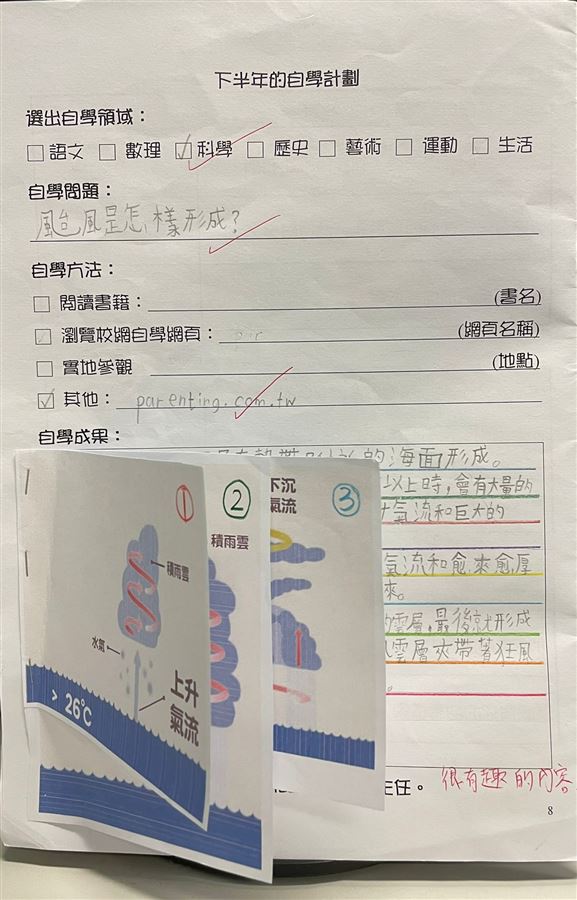 下半年的自學計劃
選出自學領域：
□語文 □數理 ☑科學 □歷史 □藝術 □運動 □生活
自學問題：
颱風是怎樣形成？
自學方法：
□ 閱讀書籍： (書名)
□ 瀏覽校網自學網頁： (網頁名稱)
□ 實地參觀 (地點)
☑ 其他： parenting.com.tw
自學成果：
的海面形成。
以上時，會有大量的
氣流和巨大的
氣流和愈來愈厚
來。
雲層，最後就形成
雲層夾帶著狂風
①
積雨雲
水氣
上升
氣流
> 26℃
②
積雨雲
下沉
氣流
③
主任。
很有趣的內容
8